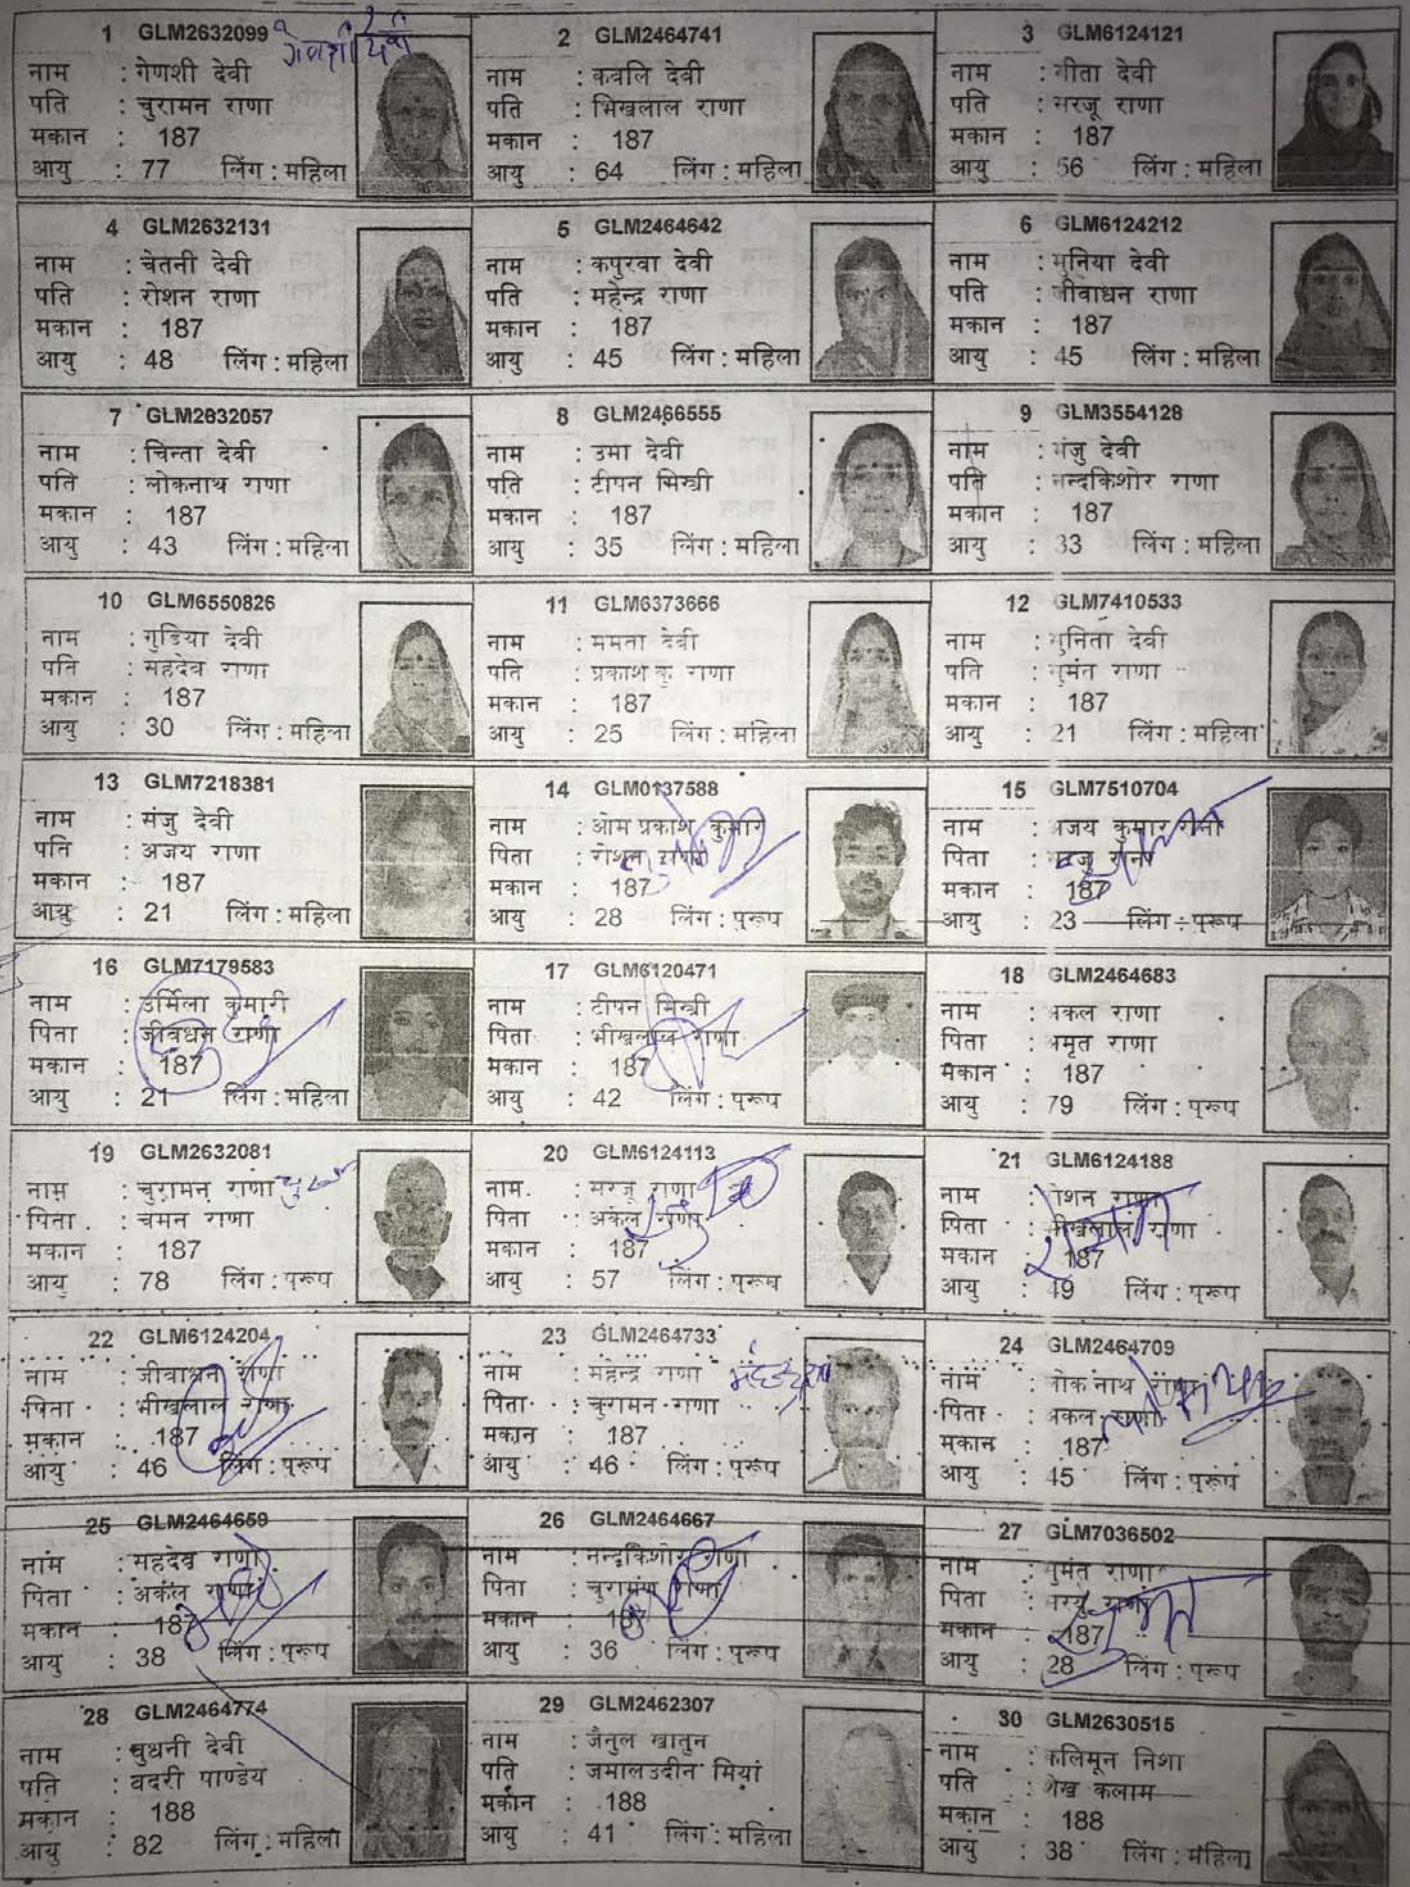 1 GLM2632099 गेनशी देवी
नाम : गेणशी देवी
पति : चुरामन राणा
मकान : 187
आयु : 77 लिंग : महिला
2 GLM2464741
नाम : कवलि देवी
पति : भिखलाल राणा
मकान : 187
आयु : 64 लिंग : महिला
3 GLM6124121
नाम : गीता देवी
पति : सरजू राणा
मकान : 187
आयु : 56 लिंग : महिला
4 GLM2632131
नाम : चेतनी देवी
पति : रोशन राणा
मकान : 187
आयु : 48 लिंग : महिला
5 GLM2464642
नाम : कपुरवा देवी
पति : महेन्द्र राणा
मकान : 187
आयु : 45 लिंग : महिला
6 GLM6124212
नाम : मुनिया देवी
पति : जीवाधन राणा
मकान : 187
आयु : 45 लिंग : महिला
7 GLM2632057
नाम : चिन्ता देवी
पति : लोकनाथ राणा
मकान : 187
आयु : 43 लिंग : महिला
8 GLM2466555
नाम : उमा देवी
पति : टीपन मिस्त्री
मकान : 187
आयु : 35 लिंग : महिला
9 GLM3554128
नाम : मंजु देवी
पति : नन्दकिशोर राणा
मकान : 187
आयु : 33 लिंग : महिला
10 GLM6550826
नाम : गुडिया देवी
पति : सहदेव राणा
मकान : 187
आयु : 30 लिंग : महिला
11 GLM6373666
नाम : ममता देवी
पति : प्रकाश कु राणा
मकान : 187
आयु : 25 लिंग : महिला
12 GLM7410533
नाम : सुनिता देवी
पति : सुमंत राणा
मकान : 187
आयु : 21 लिंग : महिला
13 GLM7218381
नाम : संजु देवी
पति : अजय राणा
मकान : 187
आयु : 21 लिंग : महिला
14 GLM0137588
नाम : ओम प्रकाश कुमार
पिता : रोशन राणा
मकान : 187
आयु : 28 लिंग : पुरूष
15 GLM7510704
नाम : अजय कुमार राना
पिता : सरजु राना
मकान : 187
आयु : 23 लिंग : पुरूष
16 GLM7179583
नाम : उर्मिला कुमारी
पिता : जीवधन राणा
मकान : 187
आयु : 21 लिंग : महिला
17 GLM6120471
नाम : टीपन मिस्त्री
पिता : भीखलाल राणा
मकान : 187
आयु : 42 लिंग : पुरूष
18 GLM2464683
नाम : अकल राणा
पिता : अमृत राणा
मकान : 187
आयु : 79 लिंग : पुरूष
19 GLM2632081
नाम : चुरामन राणा
पिता : चमन राणा
मकान : 187
आयु : 78 लिंग : पुरूष
20 GLM6124113
नाम : सरजू राणा
पिता : अकल राणा
मकान : 187
आयु : 57 लिंग : पुरूष
21 GLM6124188
नाम : रोशन राणा
पिता : भीखलाल राणा
मकान : 187
आयु : 49 लिंग : पुरूष
22 GLM6124204
नाम : जीवाधन राणा
पिता : भीखलाल राणा
मकान : 187
आयु : 46 लिंग : पुरूष
23 GLM2464733
नाम : महेन्द्र राणा
पिता : चुरामन राणा
मकान : 187
आयु : 46 लिंग : पुरूष
24 GLM2464709
नाम : लोक नाथ राणा
पिता : अकल राणा
मकान : 187
आयु : 45 लिंग : पुरूष
25 GLM2464659
नाम : सहदेव राणा
पिता : अकल राणा
मकान : 187
आयु : 38 लिंग : पुरूष
26 GLM2464667
नाम : नन्दकिशोर राणा
पिता : चुरामण राणा
मकान : 187
आयु : 36 लिंग : पुरूष
27 GLM7036502
नाम : सुमंत राणा
पिता : सरयु राणा
मकान : 187
आयु : 28 लिंग : पुरूष
28 GLM2464774
नाम : बुधनी देवी
पति : बदरी पाण्डेय
मकान : 188
आयु : 82 लिंग : महिला
29 GLM2462307
नाम : जैनुल खातुन
पति : जमालउदीन मियां
मकान : 188
आयु : 41 लिंग : महिला
30 GLM2630515
नाम : कलिमून निशा
पति : शेख कलाम
मकान : 188
आयु : 38 लिंग : महिला